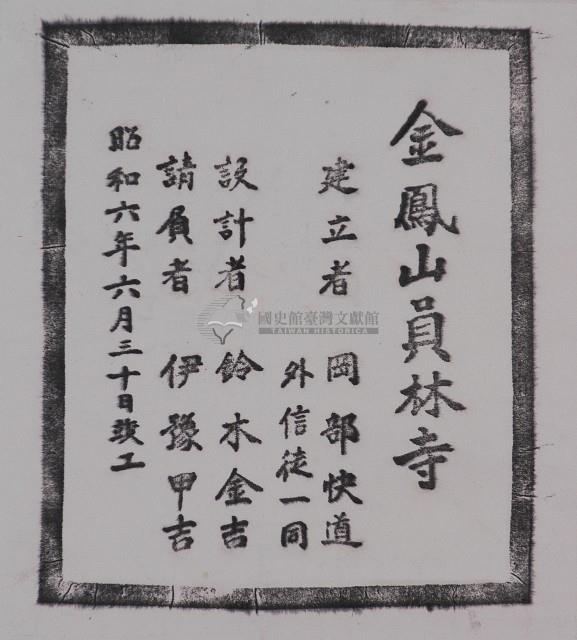 金鳳山員林寺
建立者 岡部快道
外信徒一同
設計者 鈴木金吉
請負者 伊豫甲吉
昭和六年六月三十日竣工
國史館臺灣文獻館
TAIWAN HISTORICA